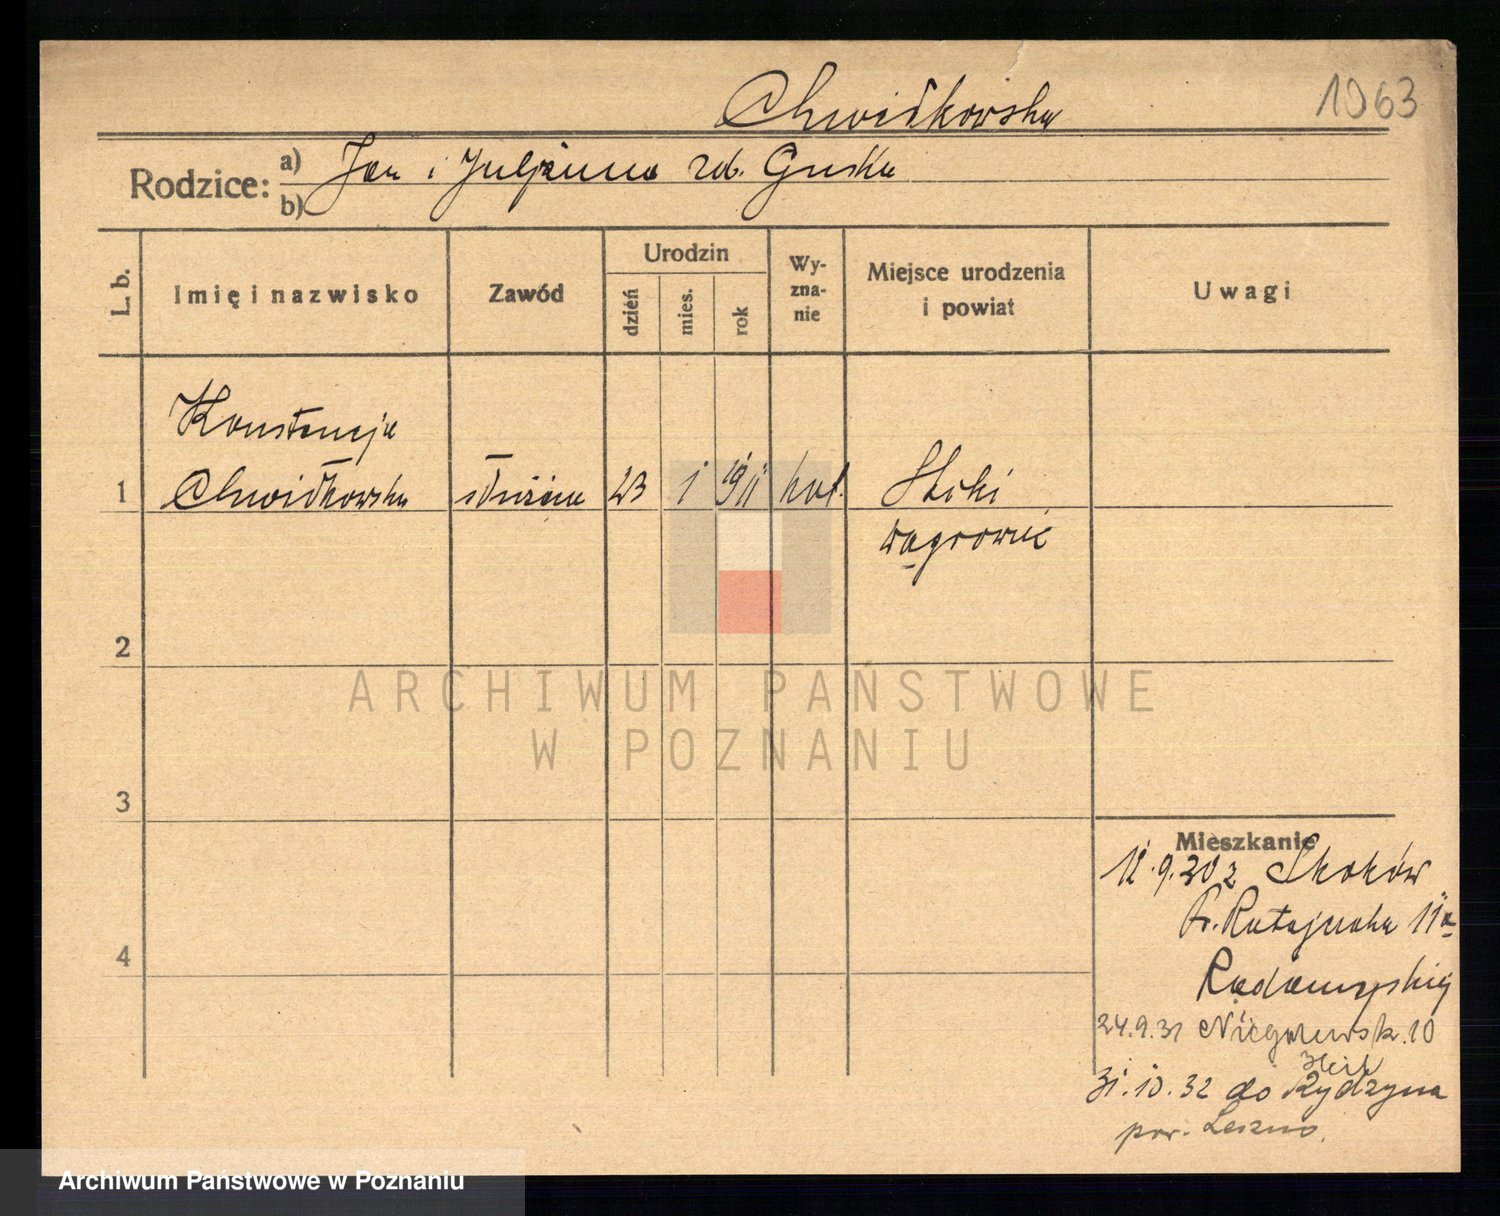 Chwiłkowska
1063
Rodzice: a) Jan i Juljanna zd. Guska
b)
L. b.
Imię i nazwisko
Zawód
Urodzin
dzień
mies.
rok
Wy-
zna-
nie
Miejsce urodzenia
i powiat
Uwagi
Konstancja
1 Chwiłkowska służąca 23 1 1911 kat. Stoki
Wągrowiec
2
ARCHIWUM PAŃSTWOWE
W POZNANIU
3
Mieszkanie
11.9.30 z Skoków
Fr. Ratajczaka 11a
4
24.9.31 Niegolewsk. 10
31.10.32 do Rydzyna
pow. Leszno.
Archiwum Państwowe w Poznaniu